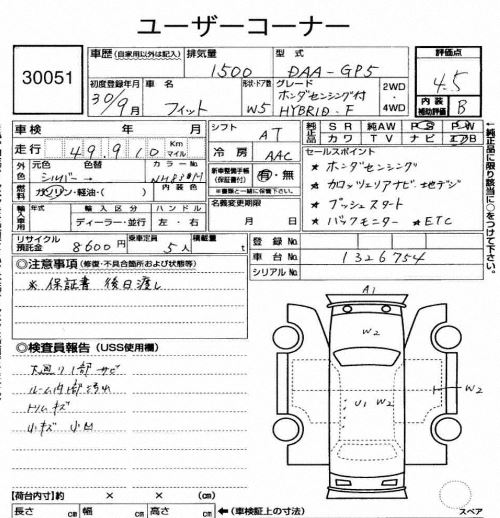 ユーザーコーナー
30051
車歴 (自家用以外は記入) 排気量 型式
1500 DAA-GP5
評価点
4.5
内装補助評価 B
初度登録年月 車名 形状・ドア数 グレード
30/9月 フィット W5 ホンダセンシング付 HYBRID・F
2WD
4WD
車検 年 月
シフト AT
純正品 SR 純AW PS PW
カワ TV ナビ エアB
走行 49,910 Km マイル
冷房 AAC
セールスポイント
＊ ホンダセンシング
＊ カロッツェリアナビ 地デジ
＊ プッシュスタート
＊ バックモニター ＊ETC
←純正品に限り該当に○をつけて下さい。
外色 元色 色替 カラーNo.
シルバー→ NH880M
新車整備手帳 (保証書付) 有・無
※書類と一緒に保管下さい.
燃料 ガソリン・軽油・( ) 内装色
名義変更期限
月 日
輸入車用 年式 輸入区分 ハンドル
ディーラー・並行 左・右
リサイクル預託金 8600円 乗車定員 5人 積載量 t
登録No.
車台No. 1326754
シリアルNo.
◎注意事項 (修復・不具合箇所および状態等)
＊ 保証書 後日渡し
◎検査員報告 (USS使用欄)
下廻り1部サビ
ルーム内部汚れ
トリムキズ
小キズ 小凹
A1
W2
U1 W2
W2
スペア
【荷台内寸】約 × × (cm)
長さ cm 幅 cm 高さ cm ←(車検証上の寸法)